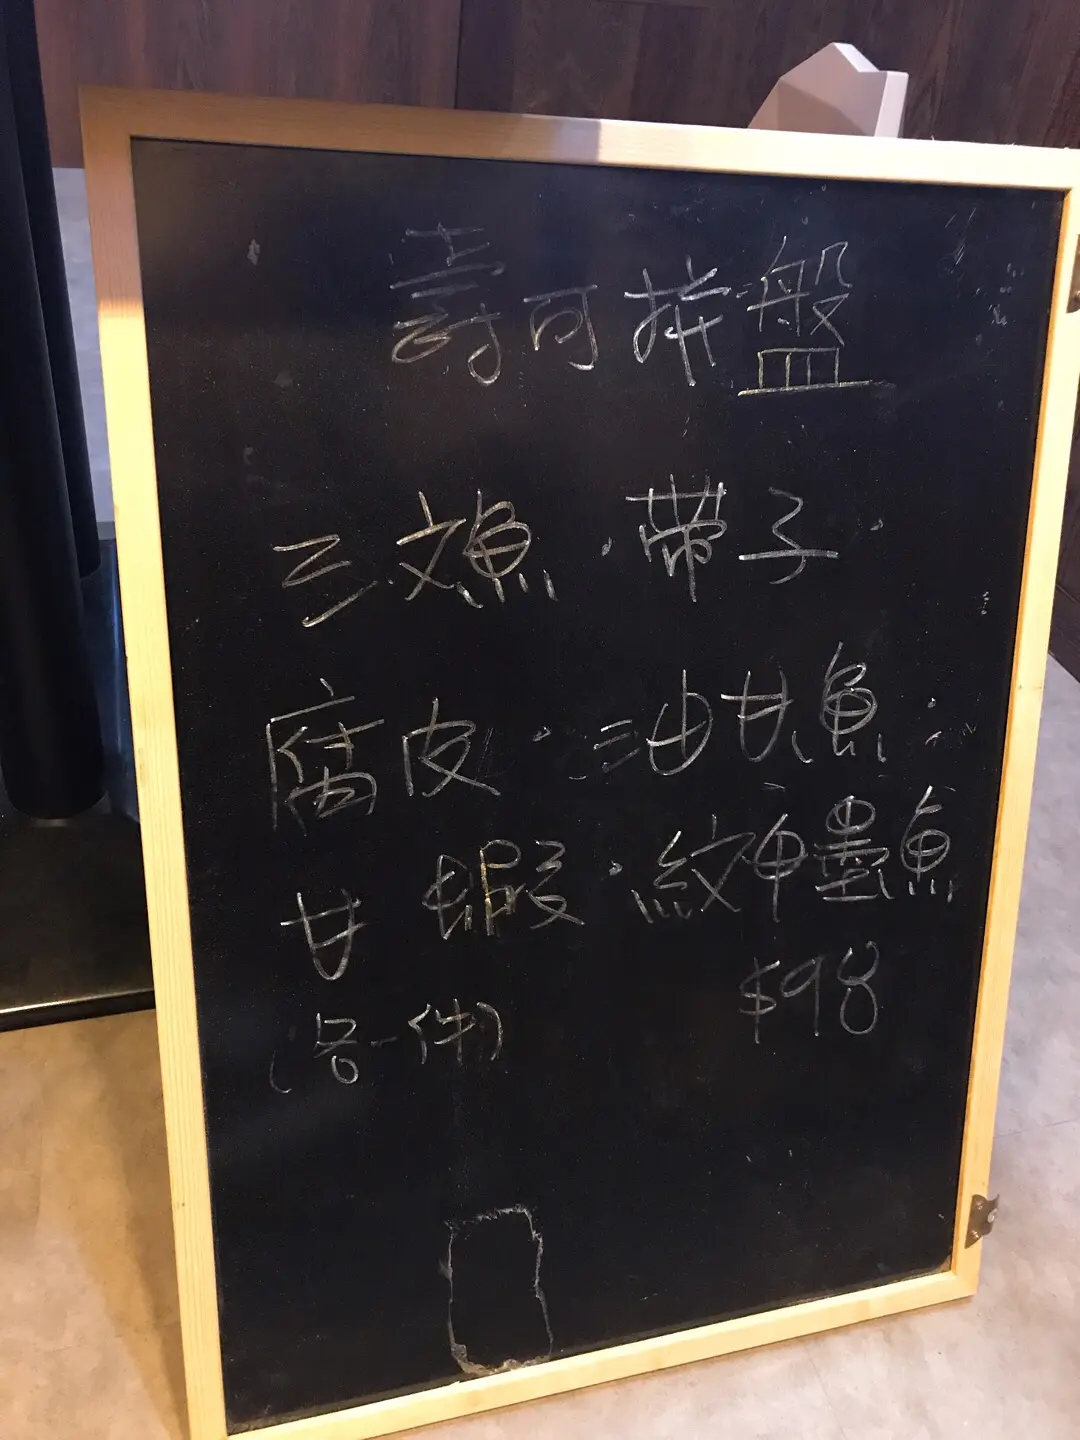 壽司拼盤
三文魚·帶子·
腐皮·油甘魚·
甘蝦·紋甲墨魚
(各一件) $98